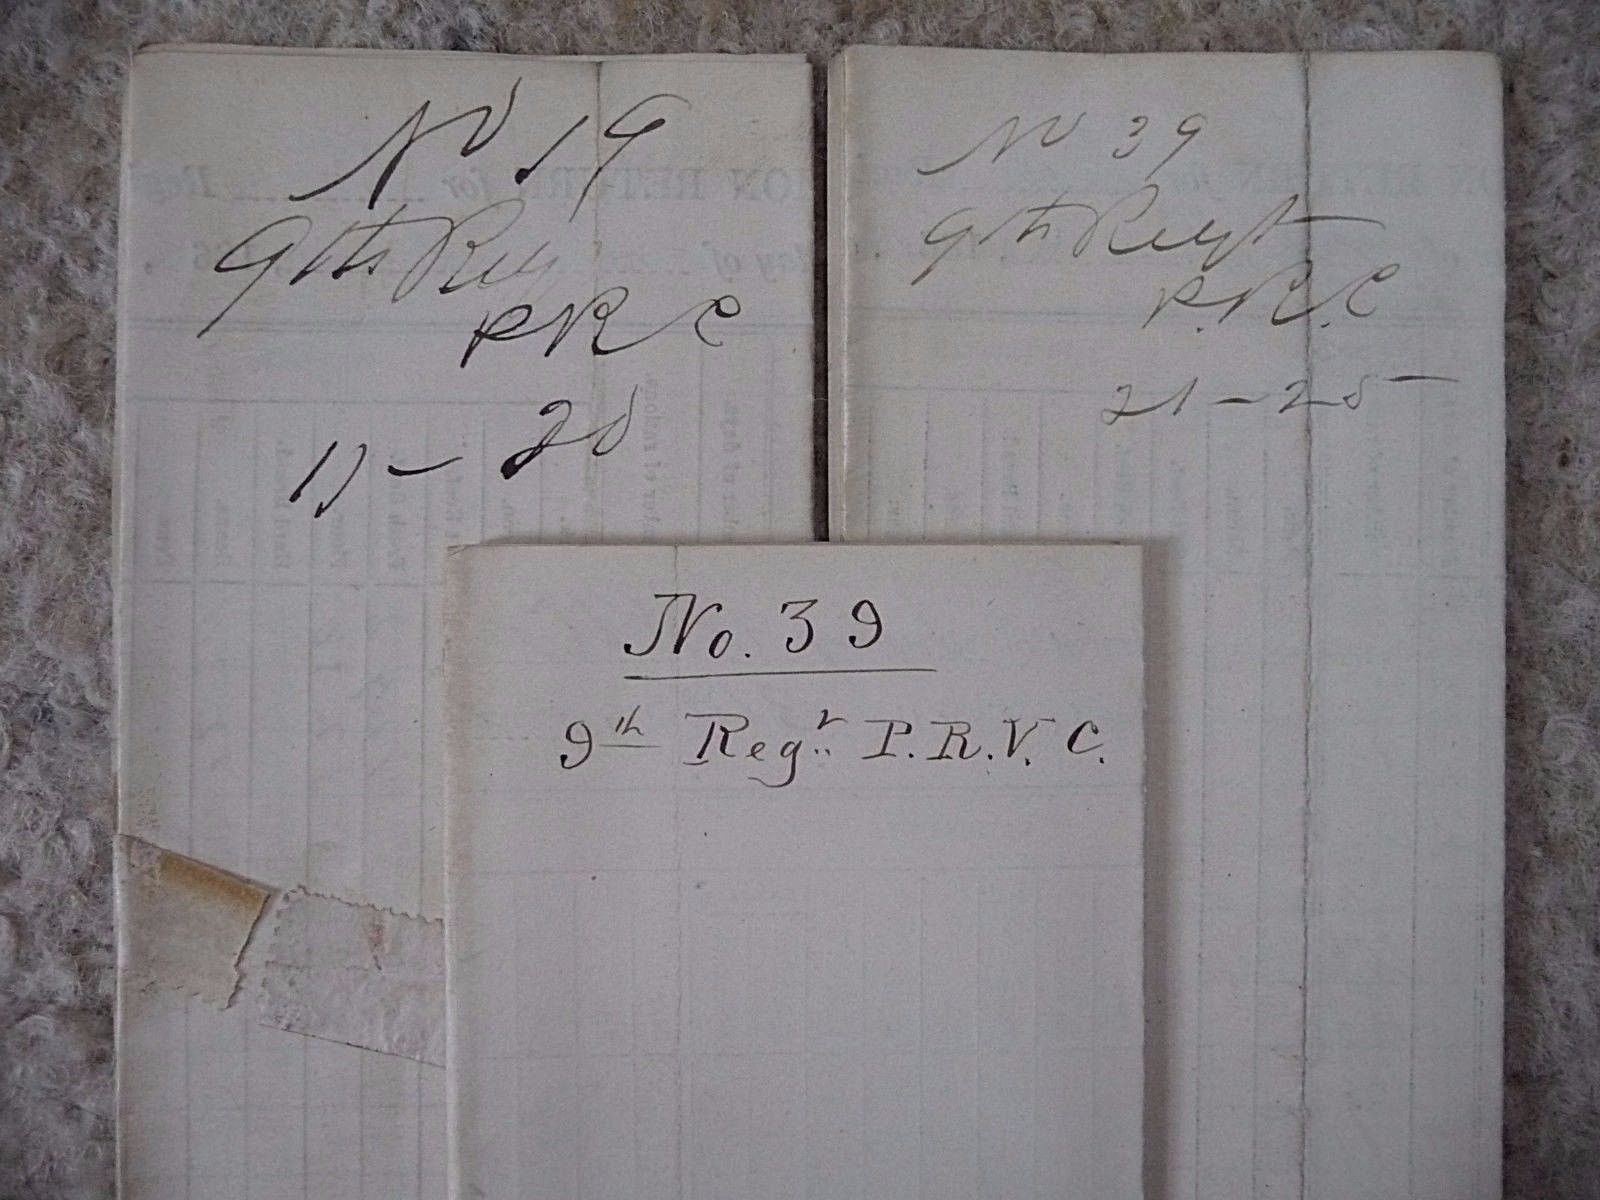 No 19
9th Reg
P R C
11 - 20
No 39
9th Regt
P.R.C
21 - 25
No. 39
9th Regt P.R.V.C.